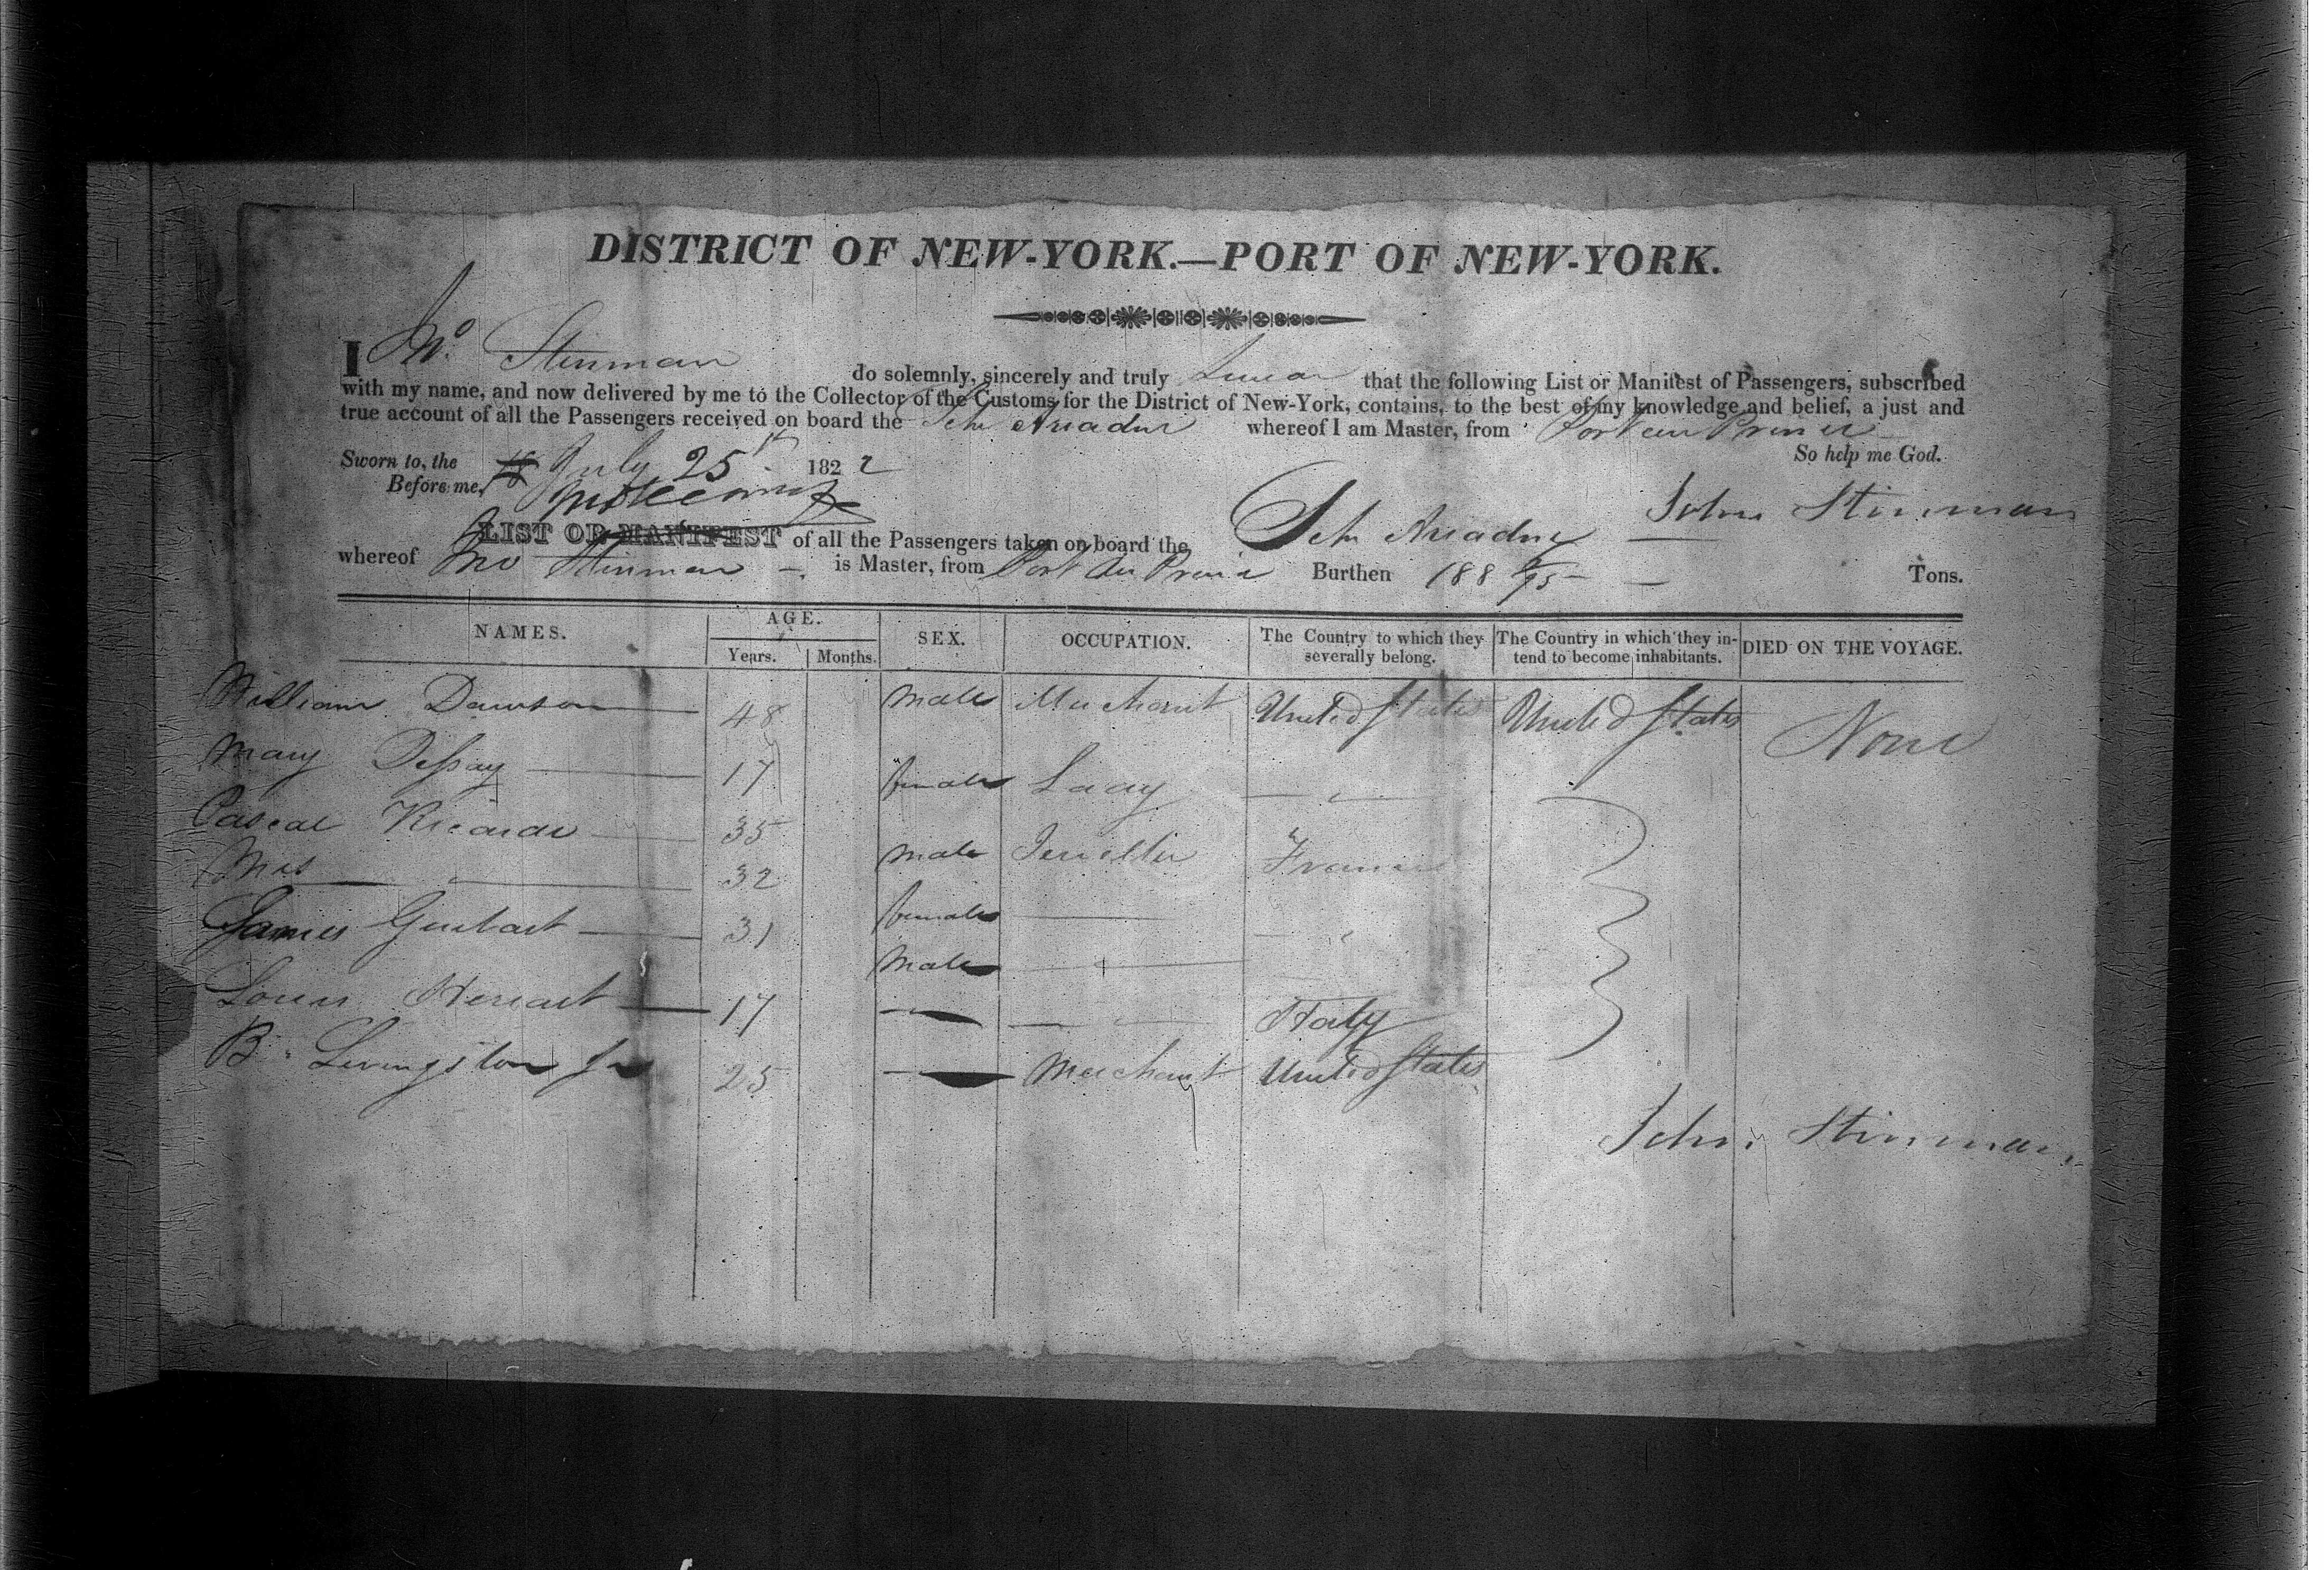 DISTRICT OF NEW-YORK.—PORT OF NEW-YORK.
I Jno. Stinman do solemnly, sincerely and truly swear that the following List or Manifest of Passengers, subscribed
with my name, and now delivered by me to the Collector of the Customs for the District of New-York, contains, to the best of my knowledge and belief, a just and
true account of all the Passengers received on board the Schr Ariadne whereof I am Master, from Port au Prince
So help me God.
Sworn to, the July 25 1822
Before me,
John Stinman
LIST OR MANIFEST of all the Passengers taken on board the Schr Ariadne
whereof Jno Stinman is Master, from Port Au Prince Burthen 188 /95 Tons.
NAMES. AGE. SEX. OCCUPATION. The Country to which they severally belong. The Country in which they intend to become inhabitants. DIED ON THE VOYAGE.
Years. Months.
William Dawson 48 Male Merchant United States United States None
Mary Dessay 17 female Lady "
Pascal Ricardo 35 Male Jeweller France
Mrs " 32 female
James 31 Male "
Louis 17 " " Italy
B. Livingston Jr 25 Merchant United States
John Stinman